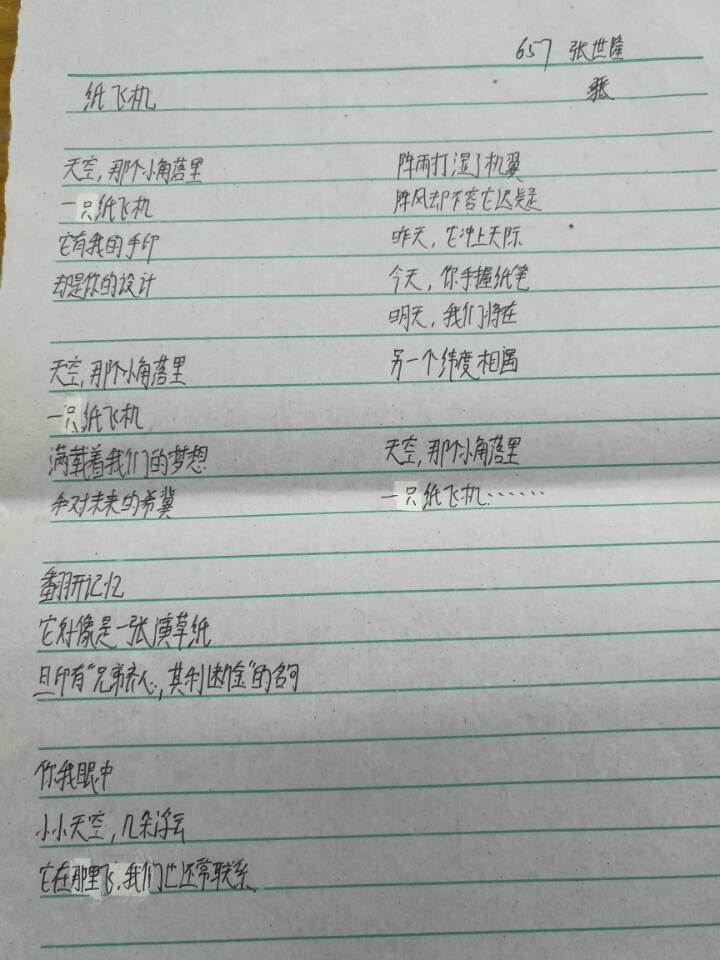 657 张世隆
张
纸飞机
天空，那个小角落里
一只纸飞机
它有我的手印
却是你的设计
天空，那个小角落里
一只纸飞机
满载着我们的梦想
和对未来的希冀
翻开记忆
它好像是一张演草纸
且印有“兄弟齐心，其利断金”的名句
你我眼中
小小天空，几朵浮云
它在那里飞，我们也还常联系
阵雨打湿了机翼
阵风却不容它迟疑
昨天，它冲上天际
今天，你手握纸笔
明天，我们将在
另一个纬度相遇
天空，那个小角落里
一只纸飞机……